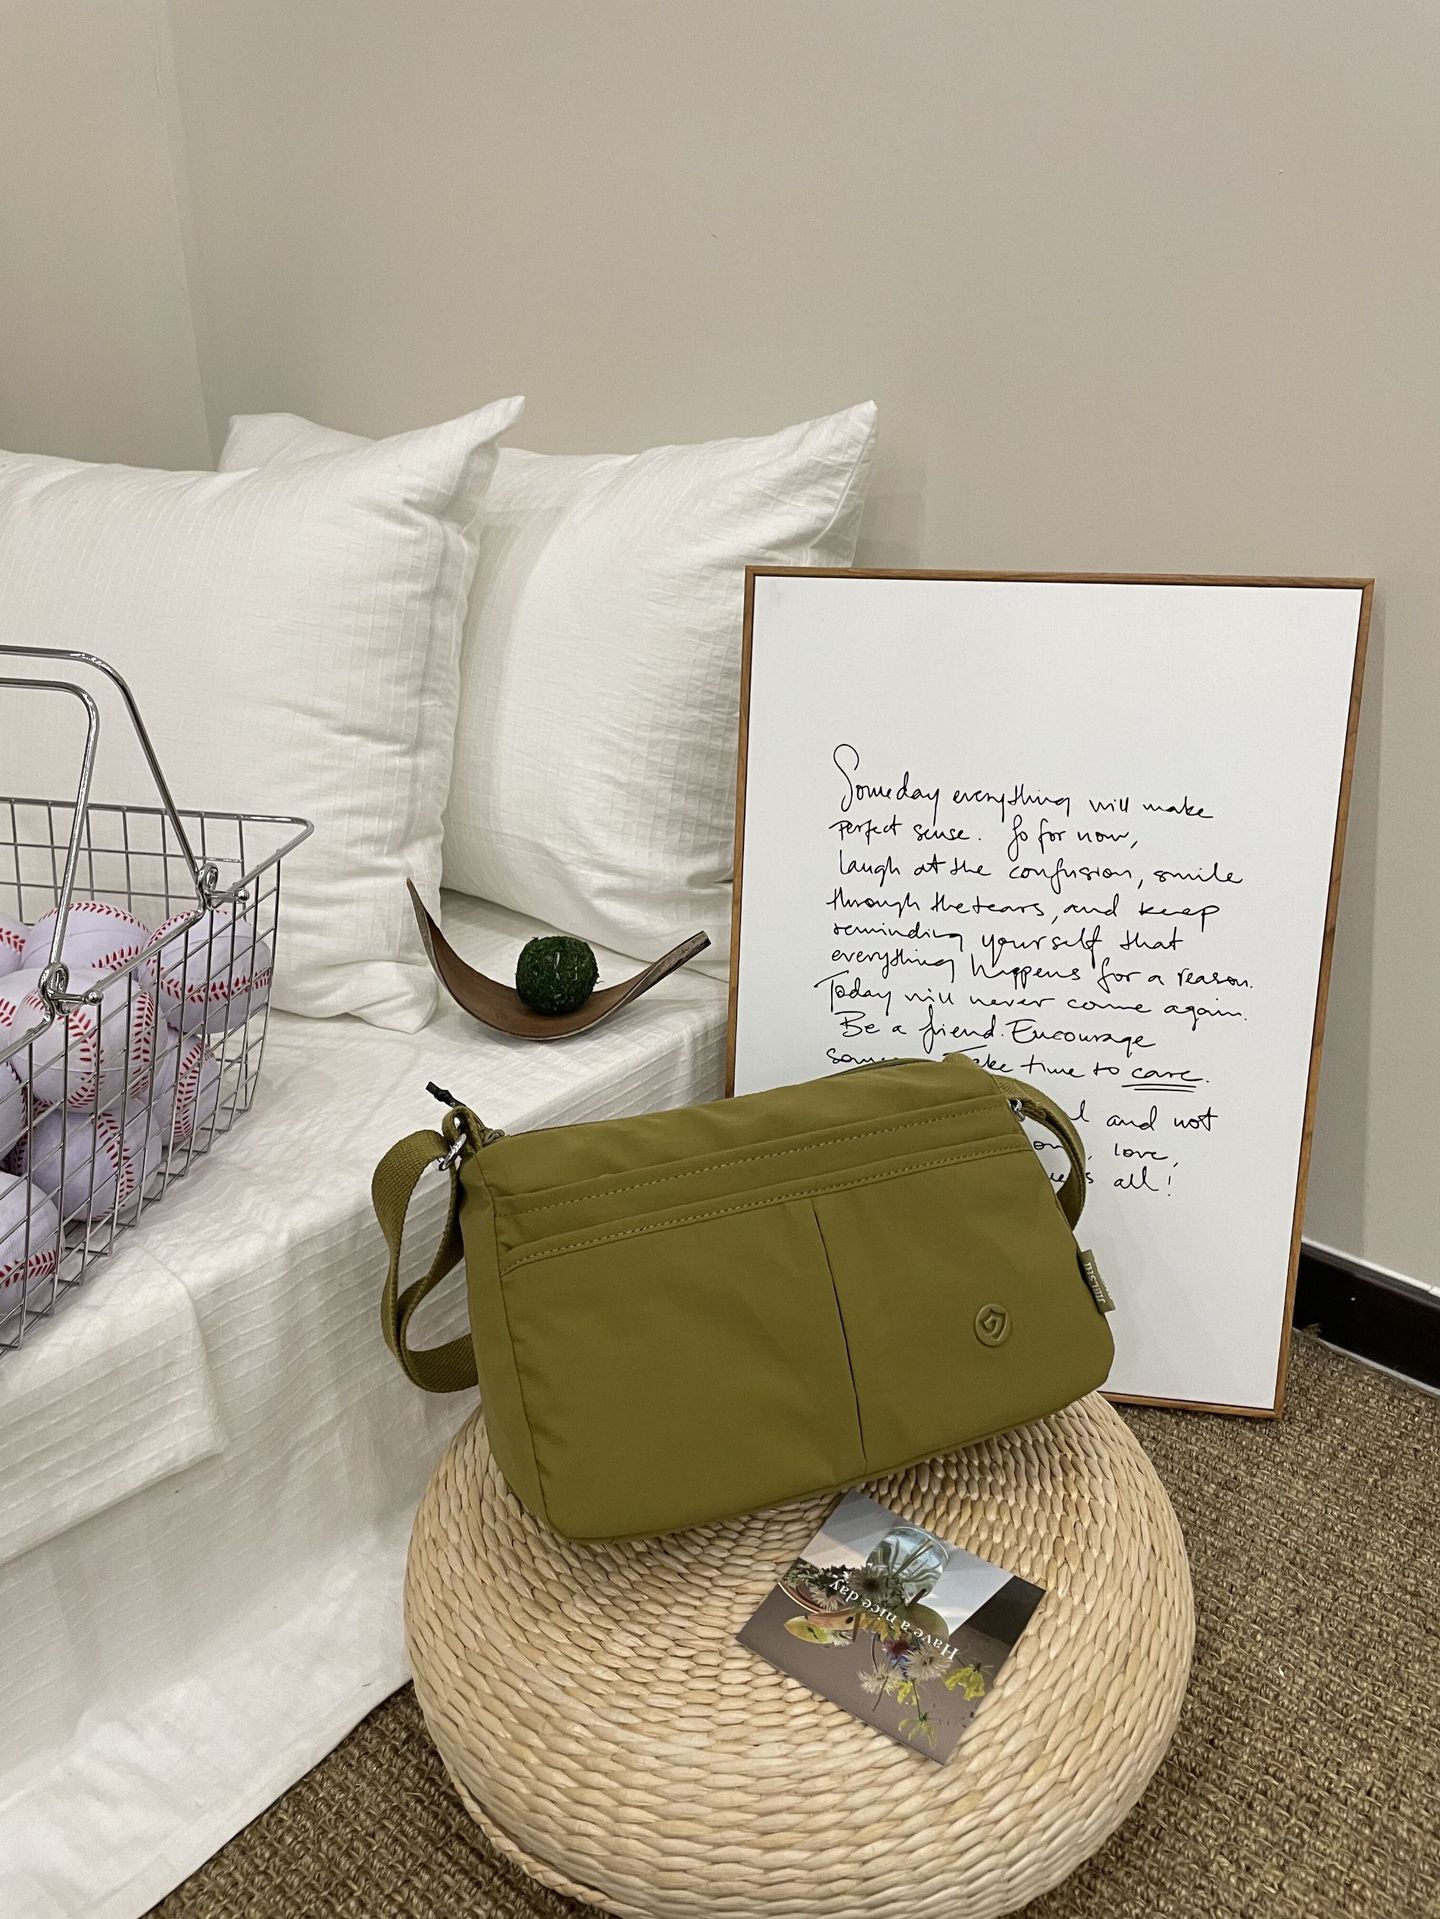 Someday everything will make
perfect sense. So for now,
laugh at the confusion, smile
through the tears, and keep
reminding yourself that
everything happens for a reason.
Today will never come again.
Be a friend. Encourage
time to care.
and not
love,
all!
Have a nice day